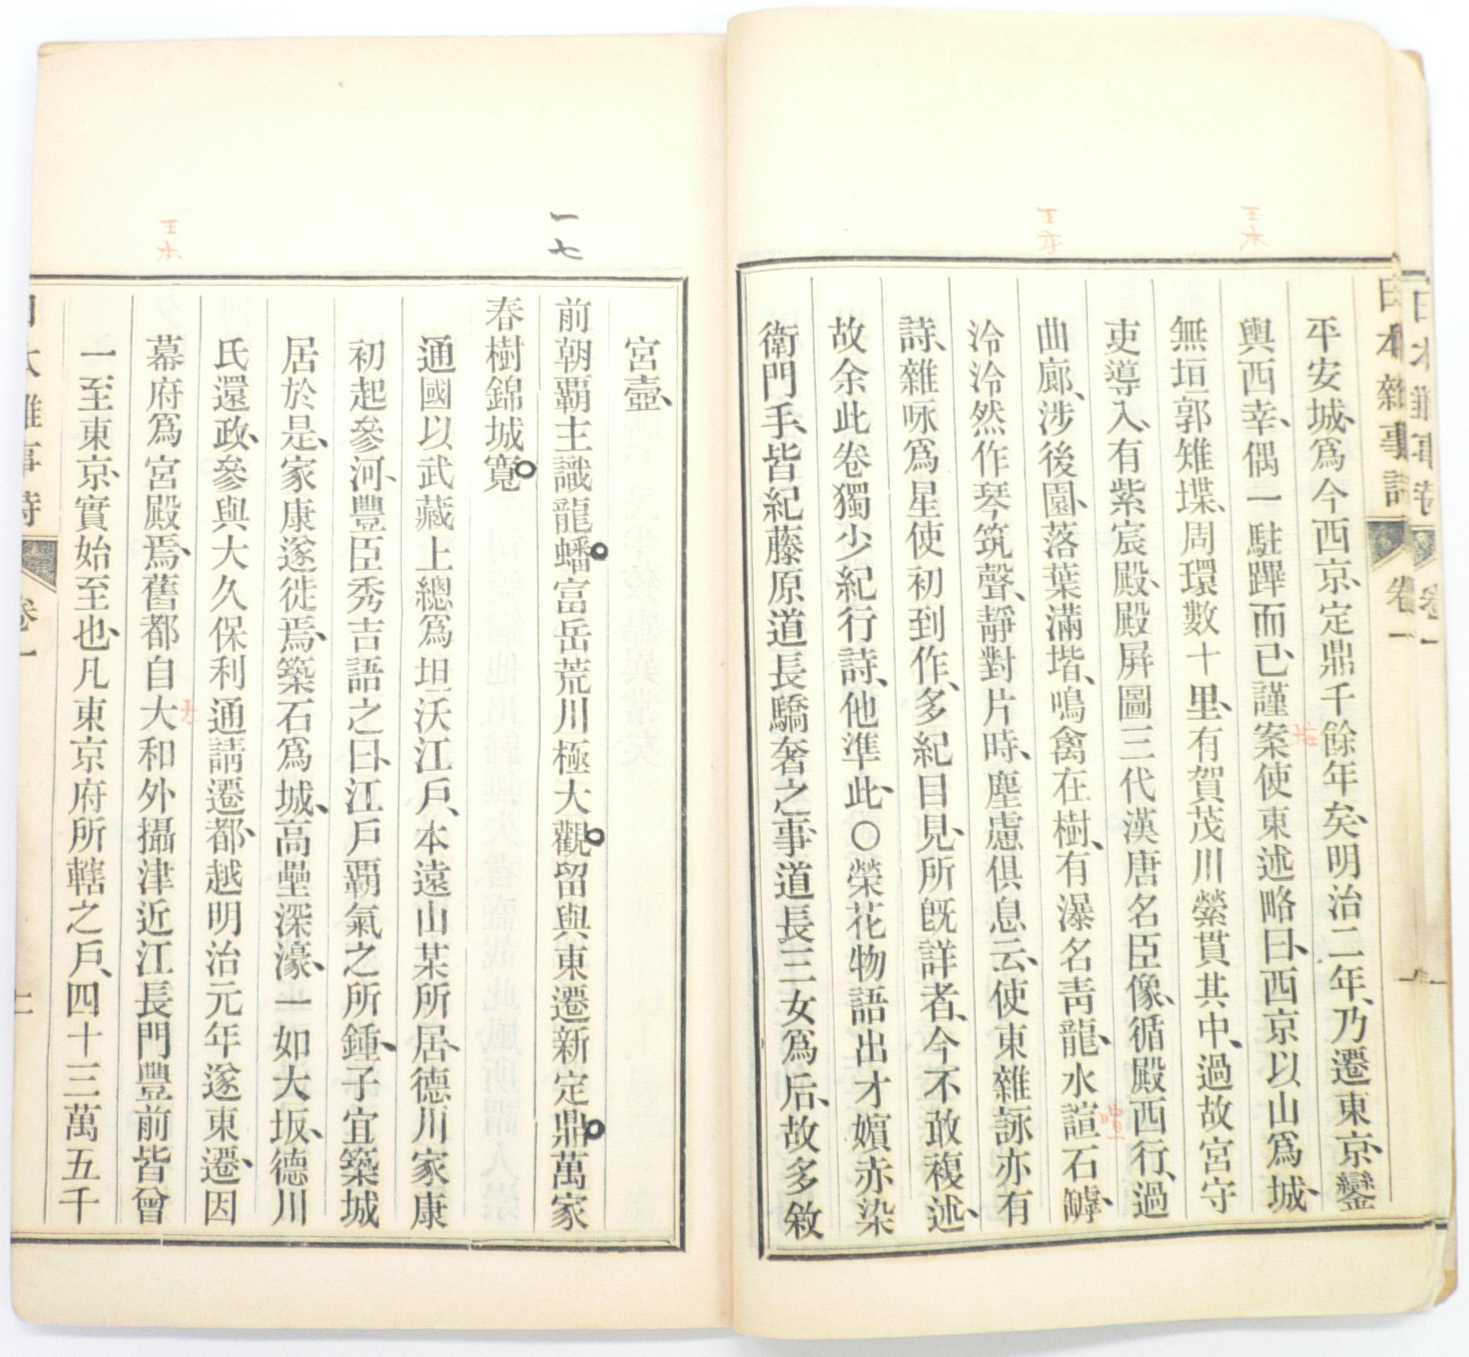 平安城、爲今西京、定鼎千餘年矣、明治二年、乃遷東京、鑾
輿西幸、偶一駐蹕而已、謹案使東述略曰、西京以山爲城、
無垣郭雉堞、周環數十里、有賀茂川縈貫其中、過故宮守
吏導入、有紫宸殿、殿屛圖三代漢唐名臣像、循殿西行、過
曲廊、涉後園、落葉滿堦、鳴禽在樹、有瀑名靑龍、水諠石罅、
泠泠然作琴筑聲、靜對片時、塵慮俱息云、使東雜詠亦有
詩、雜咏爲星使初到作、多紀目見、所旣詳者、今不敢複述、
故余此卷獨少紀行詩、他準此、〇榮花物語出才嬪赤染
衛門手、皆紀藤原道長驕奢之事、道長三女爲后、故多敘
日本雜事詩
卷一
王本
王本
一七
宮壺、
前朝霸主識龍蟠富岳荒川極大觀留與東遷新定鼎萬家
春樹錦城寬
通國以武藏上總爲坦沃江戶、本遠山某所居、德川家康
初起參河、豐臣秀吉語之曰、江戶霸氣之所鍾、子宜築城
居於是、家康遂徙焉、築石爲城、高壘深濠、一如大坂、德川
氏還政、參與大久保利通請遷都、越明治元年遂東遷、因
幕府爲宮殿焉、舊都自大和外攝津近江長門豐前皆曾
一至東京、實始至也、凡東京府所轄之戶、四十三萬五千
王本
日本雜事詩
卷一